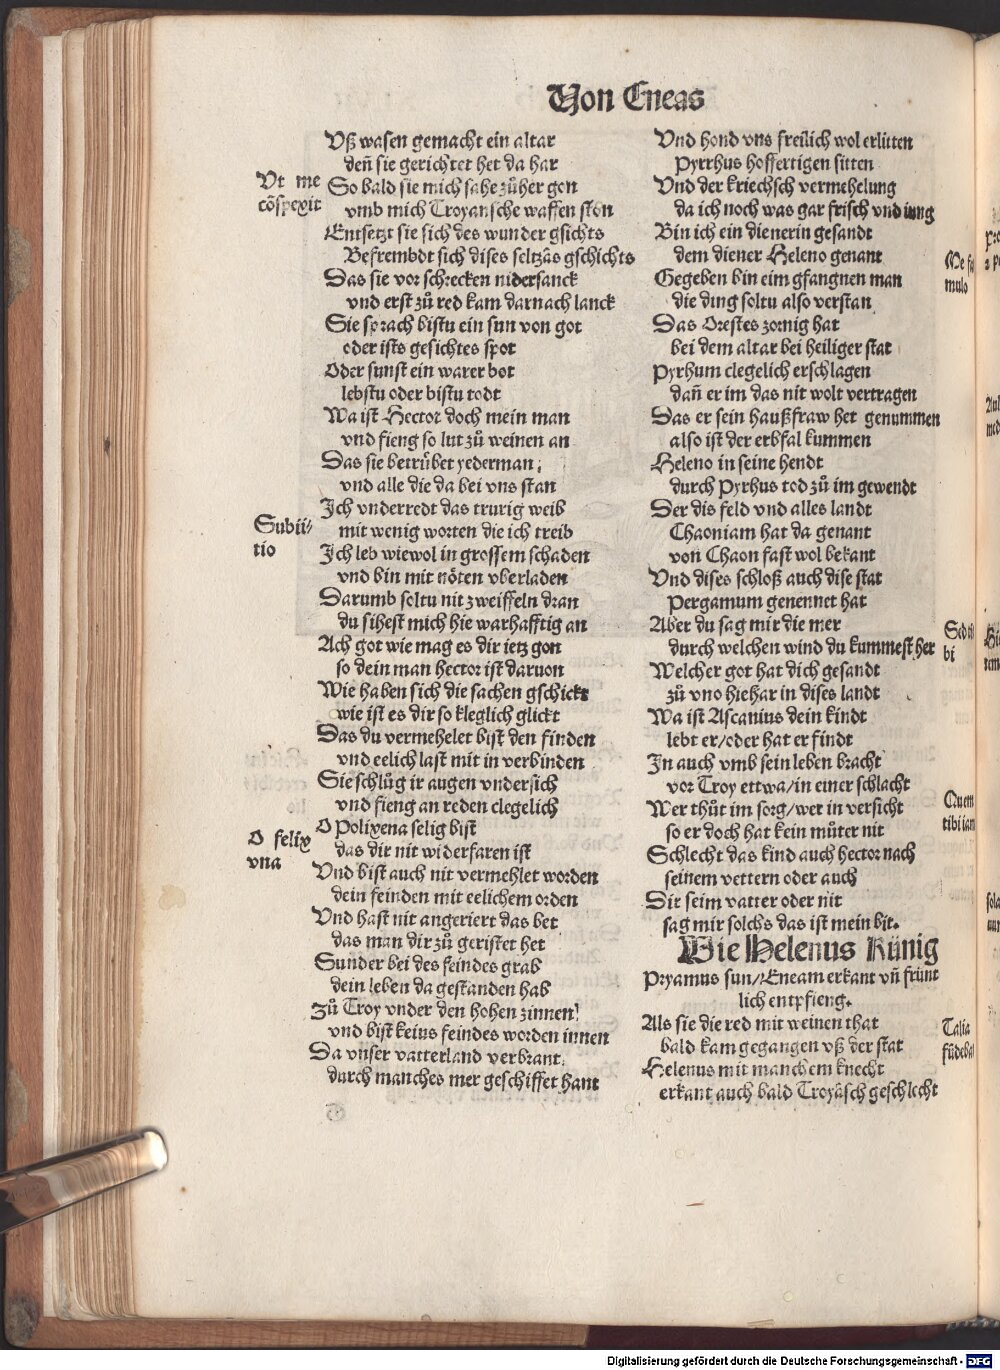 Von Eneas
Vß wasen gemacht ein altar
deñ sie gerichtet het da har
Vt me
cõspexit
So bald sie mich sahe zůher gon
vmb mich Troyansche waffen ston
Entsetzt sie sich des wunder gsichts
Befrembdt sich dises seltzãs gschichts
Das sie vor schrecken nidersanck
vnd erst zů red kam darnach lanck
Sie sprach bistu ein sun von got
oder ists gesichtes spot
Oder sunst ein warer bot
lebstu oder bistu todt
Wa ist Hector doch mein man
vnd fieng so lut zů weinen an
Das sie betrůbet yederman
vnd alle die da bei vns stan
Subii/
tio
Ich vnderredt das trurig weib
mit wenig worten die ich treib
Ich leb wiewol in grossem schaden
vnd bin mit nöten vberladen
Darumb soltu nit zweiffeln dran
du sihest mich hie warhafftig an
Ach got wie mag es dir ietz gon
so dein man hector ist daruon
Wie haben sich die sachen gschickt
wie ist es dir so kleglich glickt
Das du vermehelet bist den finden
vnd eelich last mit in verbinden
Sie schlůg ir augen vndersich
vnd fieng an reden clegelich
O felix
vna
O Polixena selig bist
das dir nit widerfaren ist
Vnd bist auch nit vermehlet worden
dein feinden mit eelichem orden
Vnd hast nit angeriert das bet
das man dir zů geristet het
Sunder bei des feindes grab
dein leben da gestanden hab
Zů Troy vnder den hohen zinnen
vnd bist keins feindes worden innen
Da vnser vatterland verbrant
durch manches mer geschiffet hant
Vnd hond vns freilich wol erlitten
Pyrrhus hoffertigen sitten
Vnd der kriechsch vermehelung
da ich noch was gar frisch vnd iung
Bin ich ein dienerin gesandt
dem diener Heleno genant
Me fa
mulo
Gegeben bin eim gfangnen man
die ding soltu also verstan
Das Orestes zornig hat
bei dem altar bei heiliger stat
Pyrhum clegelich erschlagen
dañ er im das nit wolt vertragen
Das er sein haußfraw het genummen
also ist der erbfal kummen
Heleno in seine hendt
durch Pyrhus tod zů im gewendt
Der dis feld vnd alles landt
Chaoniam hat da genant
von Chaon fast wol bekant
Vnd dises schloß auch dise stat
Pergamum genennet hat
Sed ti
bi
Aber du sag mir die mer
durch welchen wind du kummest her
Welcher got hat dich gesandt
zů vno hiehar in dises landt
Wa ist Ascanius dein kindt
lebt er/oder hat er findt
In auch vmb sein leben bracht
vor Troy ettwa/in einer schlacht
Quem
tibi iam
Wer thůt im sorg/wer in versicht
so er doch hat kein můter nit
Schlecht das kind auch hector nach
seinem vettern oder auch
Dir seim vatter oder nit
sag mir solchs das ist mein bit.
Wie Helenus Künig
Pryamus sun/Eneam erkant vñ frünt
lich entpfieng.
Talia
fũdebat
Als sie die red mit weinen that
bald kam gegangen vß der stat
Helenus mit manchem knecht
erkant auch bald Troyãsch geschlecht
Digitalisierung gefördert durch die Deutsche Forschungsgemeinschaft - DFG